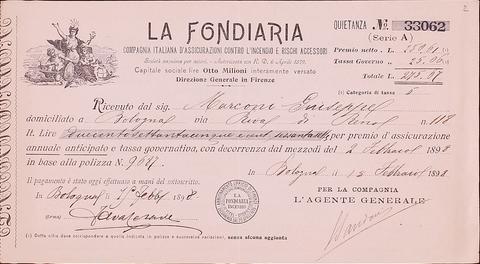 2
LA FONDIARIA
COMPAGNIA ITALIANA D'ASSICURAZIONI CONTRO L'INCENDIO E RISCHI ACCESSORI
Società anonima per azioni. Autorizzata con R. D. 6 Aprile 1879.
Capitale sociale lire Otto Milioni interamente versato
Direzione Generale in Firenze
QUIETANZA No. 33062
(Serie A)
Premio netto . L.
Tassa Governo . » 25.00
Totale L.
(1) Categoria di tassa 5
Ricevuto dal sig. Marconi Giuseppe
domiciliato a Bologna via Riva di Reno N. 118
Il. Lire Duecentosettantacinque per premio d'assicurazione
annuale anticipato e tassa governativa, con decorrenza dal mezzodì del 2 Febbraio 1898
in base alla polizza N. In Bologna 1898
Il pagamento è stato oggi effettuato a mani del sottoscritto.
In Bologna li 15 Febb. 1898
PER LA COMPAGNIA
L'AGENTE GENERALE
LA FONDIARIA
INCENDIO
(1) Detta cifra deve corrispondere a quella indicata in polizza e successive variazioni, senza alcuna aggiunta